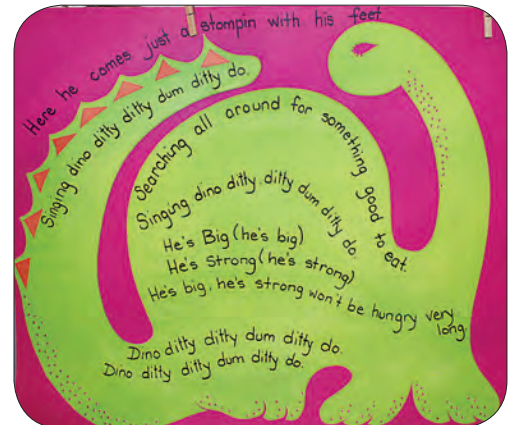 Here he comes just a stompin with his feet
Singing dino ditty ditty dum ditty do.
Searching all around for something good to eat.
Singing dino ditty, ditty dum ditty do.
He's Big (he's big)
He's Strong (he's strong)
He's big, he's strong won't be hungry very
long.
Dino ditty ditty dum ditty do.
Dino ditty ditty dum ditty do.